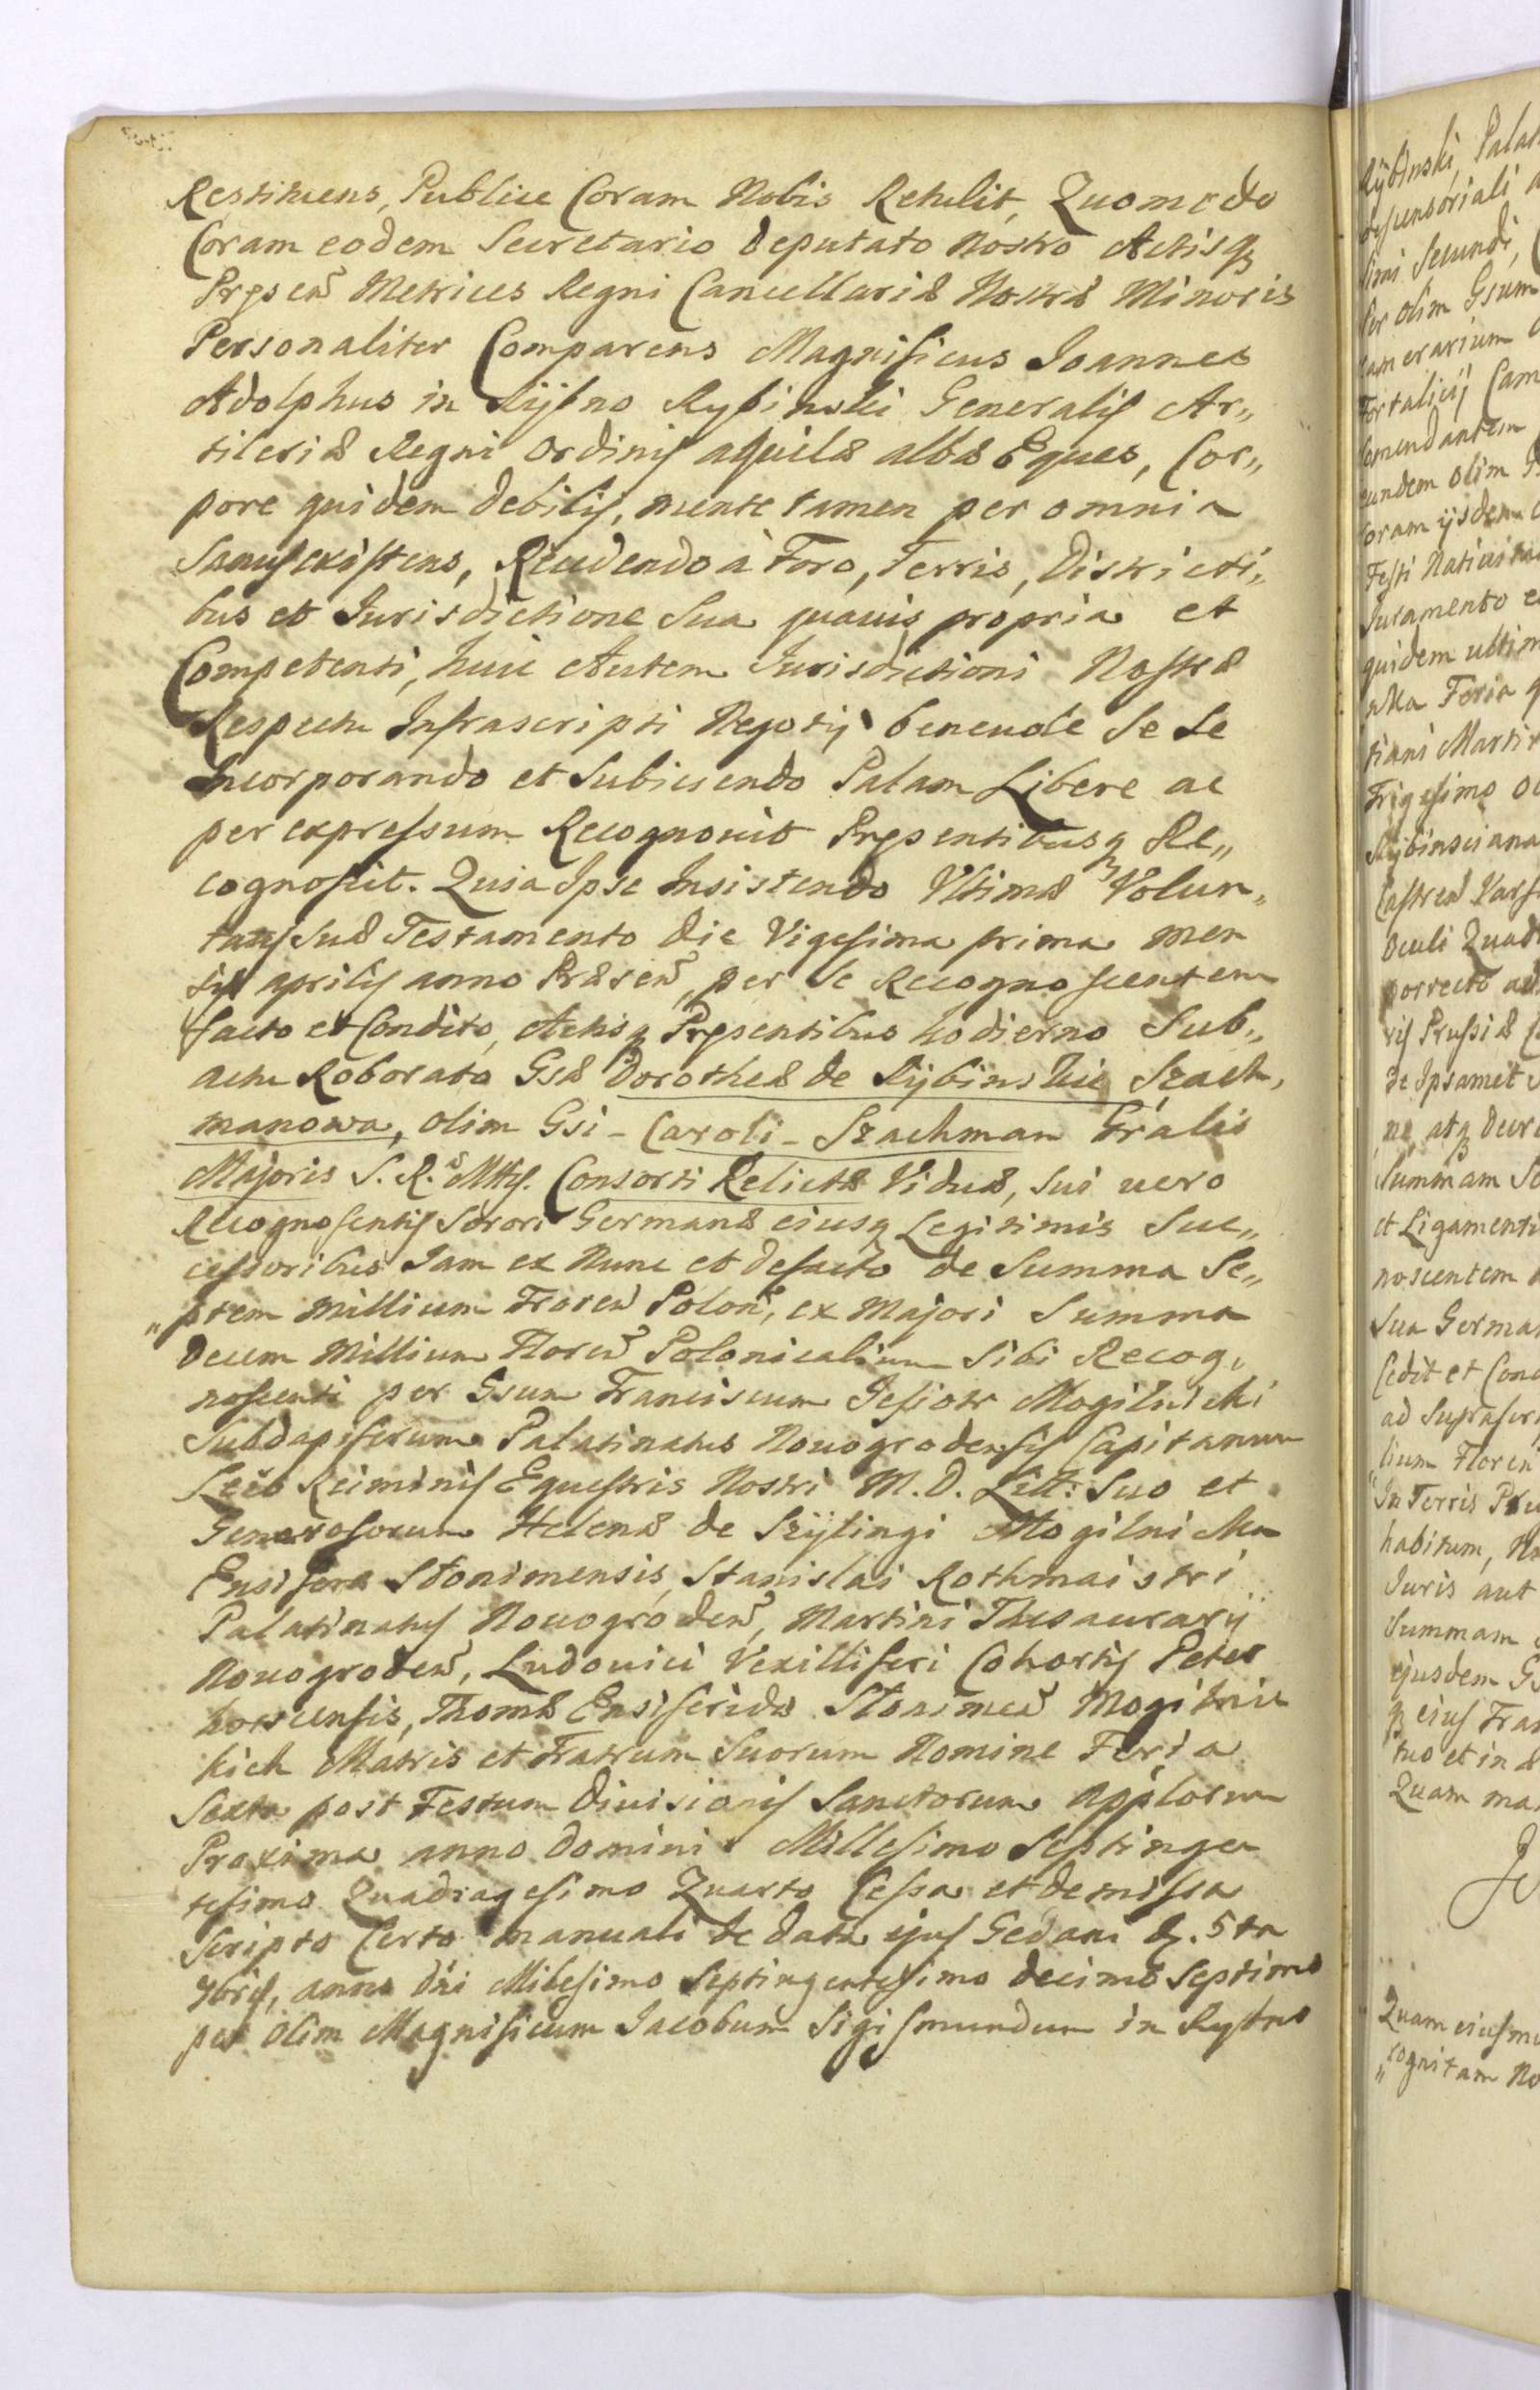 Restituens, Publice Coram Nobis Retulit, Quomodo
Coram eodem Secretario Deputato Nostro Actisqꝫ
Pręsen̄ Metrices Regni Cancellariæ Nostræ Minoris
Personaliter Comparens Magnificus Joannes
Adolphus in Ryſno Rybinski Generalis Ar„
tileriæ Regni Ordinis aquilæ albæ Eques, Cor„
pore quidem debilis, mente tamen per omnia
Sanus existens, Recedendo à Foro, Terris, Districti„
bus et Jurisdictione Sua quavis propria et
Competenti, huic Autem Jurisdictioni Nostræ
Respectu Infrascripti Negotij benevole Se Se
Incorporando et Subiiciendo Palam Libere ac
per expressum Recognovit Pręsentibusqꝫ Re„
cognoscit. Quia Ipse Insistendo Ultimæ Volun„
tatis Suæ Testamento die Vigesima prima men
sis aprilis anno Præsen̄, per Se Recognoscentem
facto et Condito, Actisqꝫ Pręsentibus hodierno Sub„
actu Roborato Gsæ Dorotheæ de Rÿbinskie Szach„
manowa, olim Gsi - Caroli - Szachman Gralis
Majoris S. R. Mttis. Consorti Relictæ Viduæ, Sui vero
Recognoscentis Sorori Germanæ eiusqꝫ Legitimis Suc„
cessoribus Jam ex Nunc et defacto de Summa Se„
„ptem Millium Floren̄ Polon̄, ex Majori Summa
Decem Millium Floren̄ Polonicalium Sibi Recog„
noscenti per Gsum Franciscum Jesiotr Mogilnicki
Subdapiferum Palatinatus Novogrodensis Capitanum
Leib Reiminis Equestris Nostri M. D. Litt: Suo et
Generosorum Helenæ de Szÿlingi Mogilnicka
Ensifera Słonimensis, Stanislai Rothmaistri
Palatinatus Novogroden̄, Martini Thesaurarÿ
Novogroden̄, Ludovici Vexilliferi Cohortis Peter
horscensis, Thomæ Ensiferidæ Słonimen̄ Mogilnic
kich Matris et Fratrum Suorum Nomine Feria
Sexta post Festum Divisionis Sanctorum Applorum
Proxima anno Domini Millesimo Septingen
tesimo Quadragesimo Quarto Cessa et demissa
Scripto Certo manuali de data ejus Gedani d. 5ta
7bris, anno Dni Milesimo Septingentesimo decimo Septimo
per olim Magnificum Jacobum Sigismundum in Rysno
Rÿbinski, Palat
limi Secundi,
Per olim Gsum
camerarium
Fortalicij Cam
eundem olim
coram ijsdem
Festi Nativita
Juramento
quidem ultim
Feria
tiani Martir
Trigesimo
Rybinsciana
Castren̄ Vars
Oculi Quad
porrecto
ris Prussiæ
de Ipsamet
atqꝫ
Summam
et Ligamenti
noscentem
Sua Germa
Cedit et Con
ad Suprascr
lium Floren
In Terris
habitum,
Juris aut
Summam
ejusdem
qꝫ eius Fra
tuo et in
Quam ma
Quam eiusm
„cognitam No